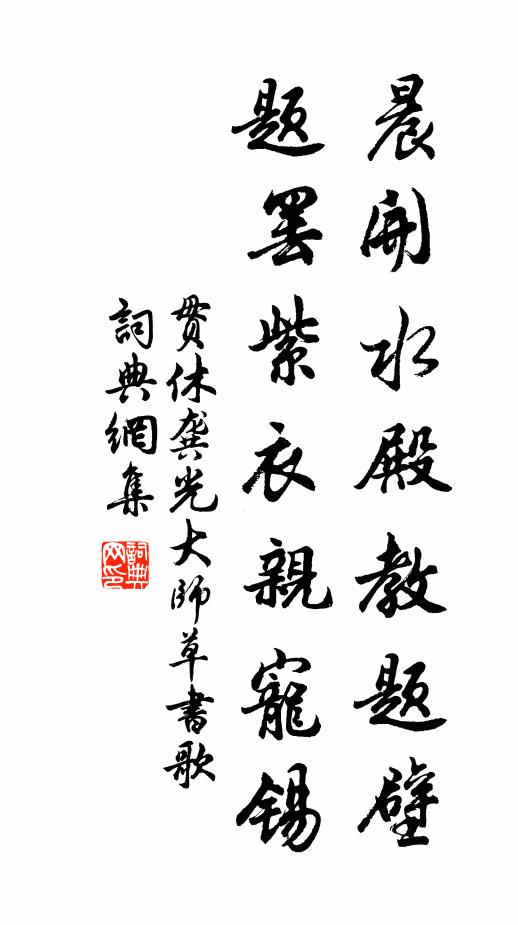 晨開水殿教題壁
題罷紫衣親寵錫
貫休龔光大師草書歌
詞典網集
詞典網印